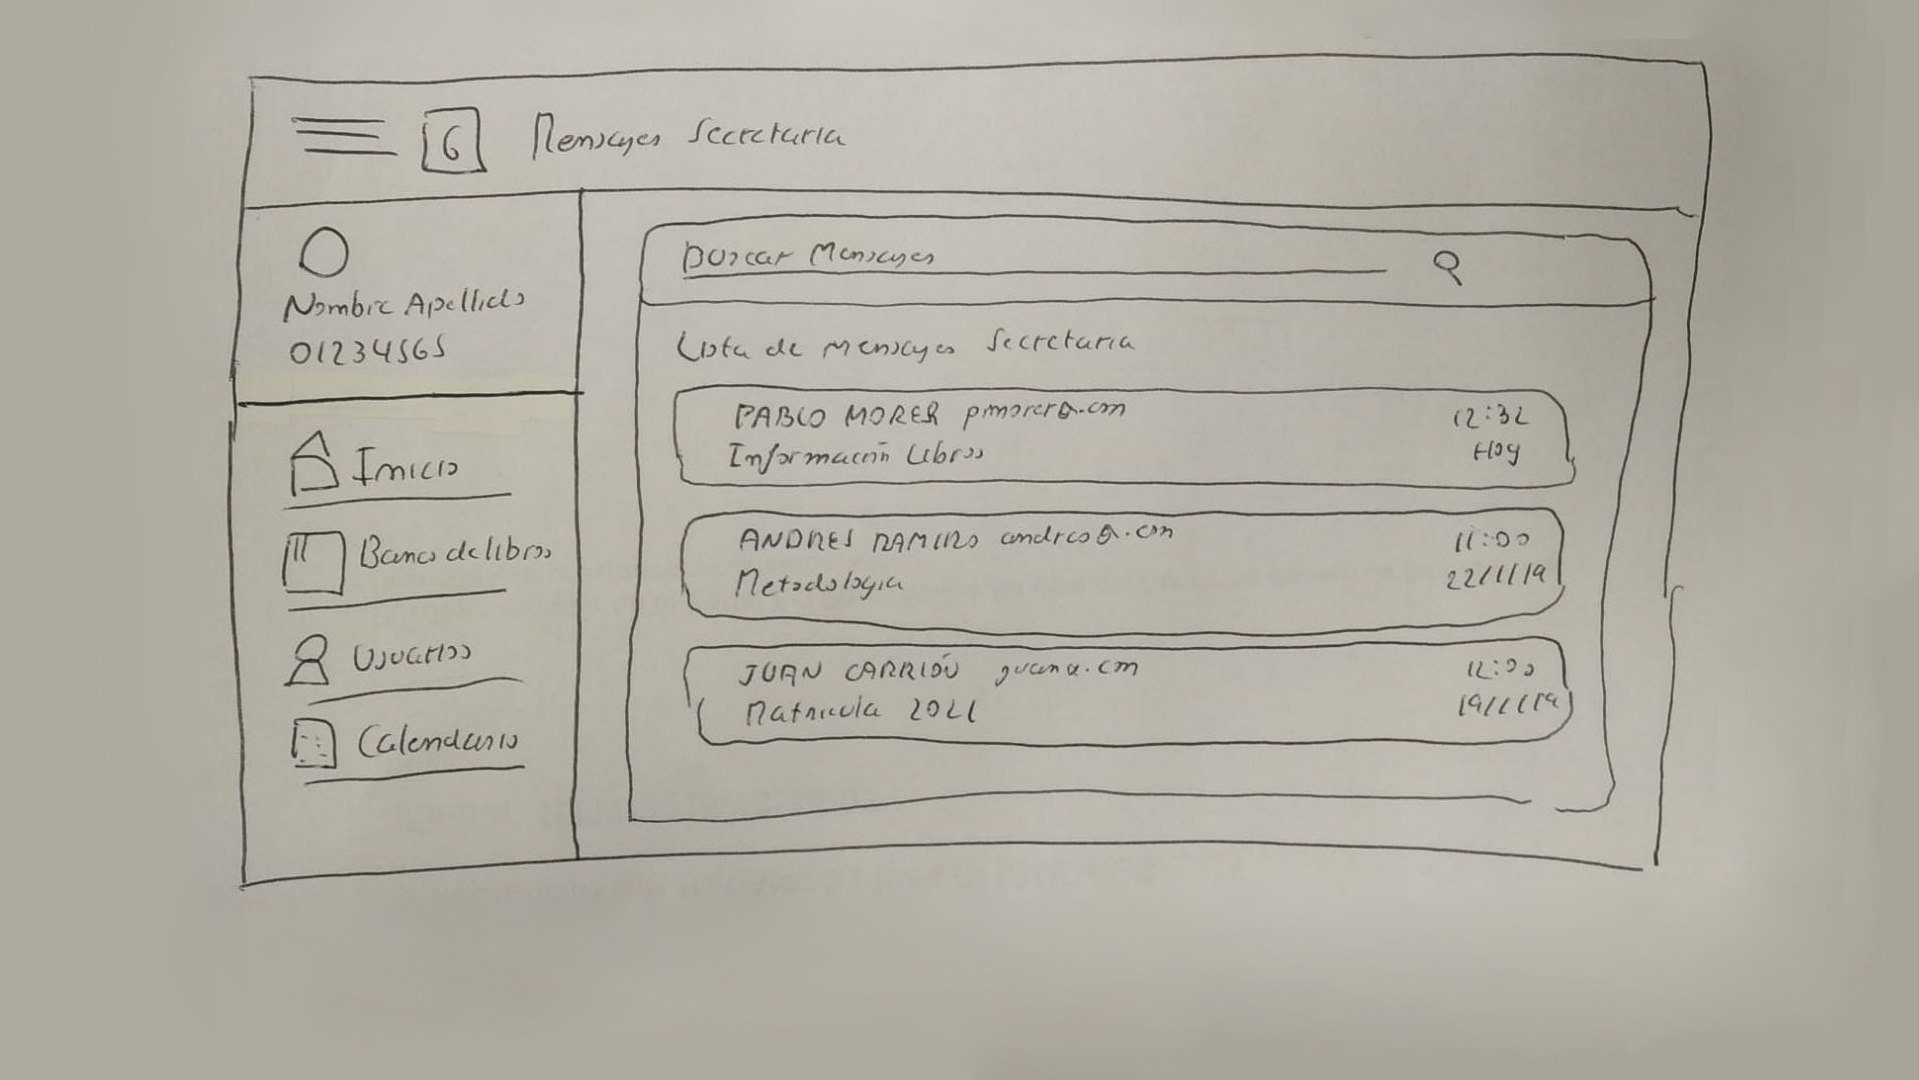 G Mensajes Secretaria
Nombre Apellido
01234565
Inicio
Banco de libros
Usuarios
Calendario
Buscar Mensajes
Lista de mensajes Secretaria
PABLO MORER pmorer@.com 12:32
Información Libros Hoy
ANDRES RAMIRO andres@.com 11:00
Metodologia 22/1/19
JUAN CARRIÓN 12:00
Matricula 2021